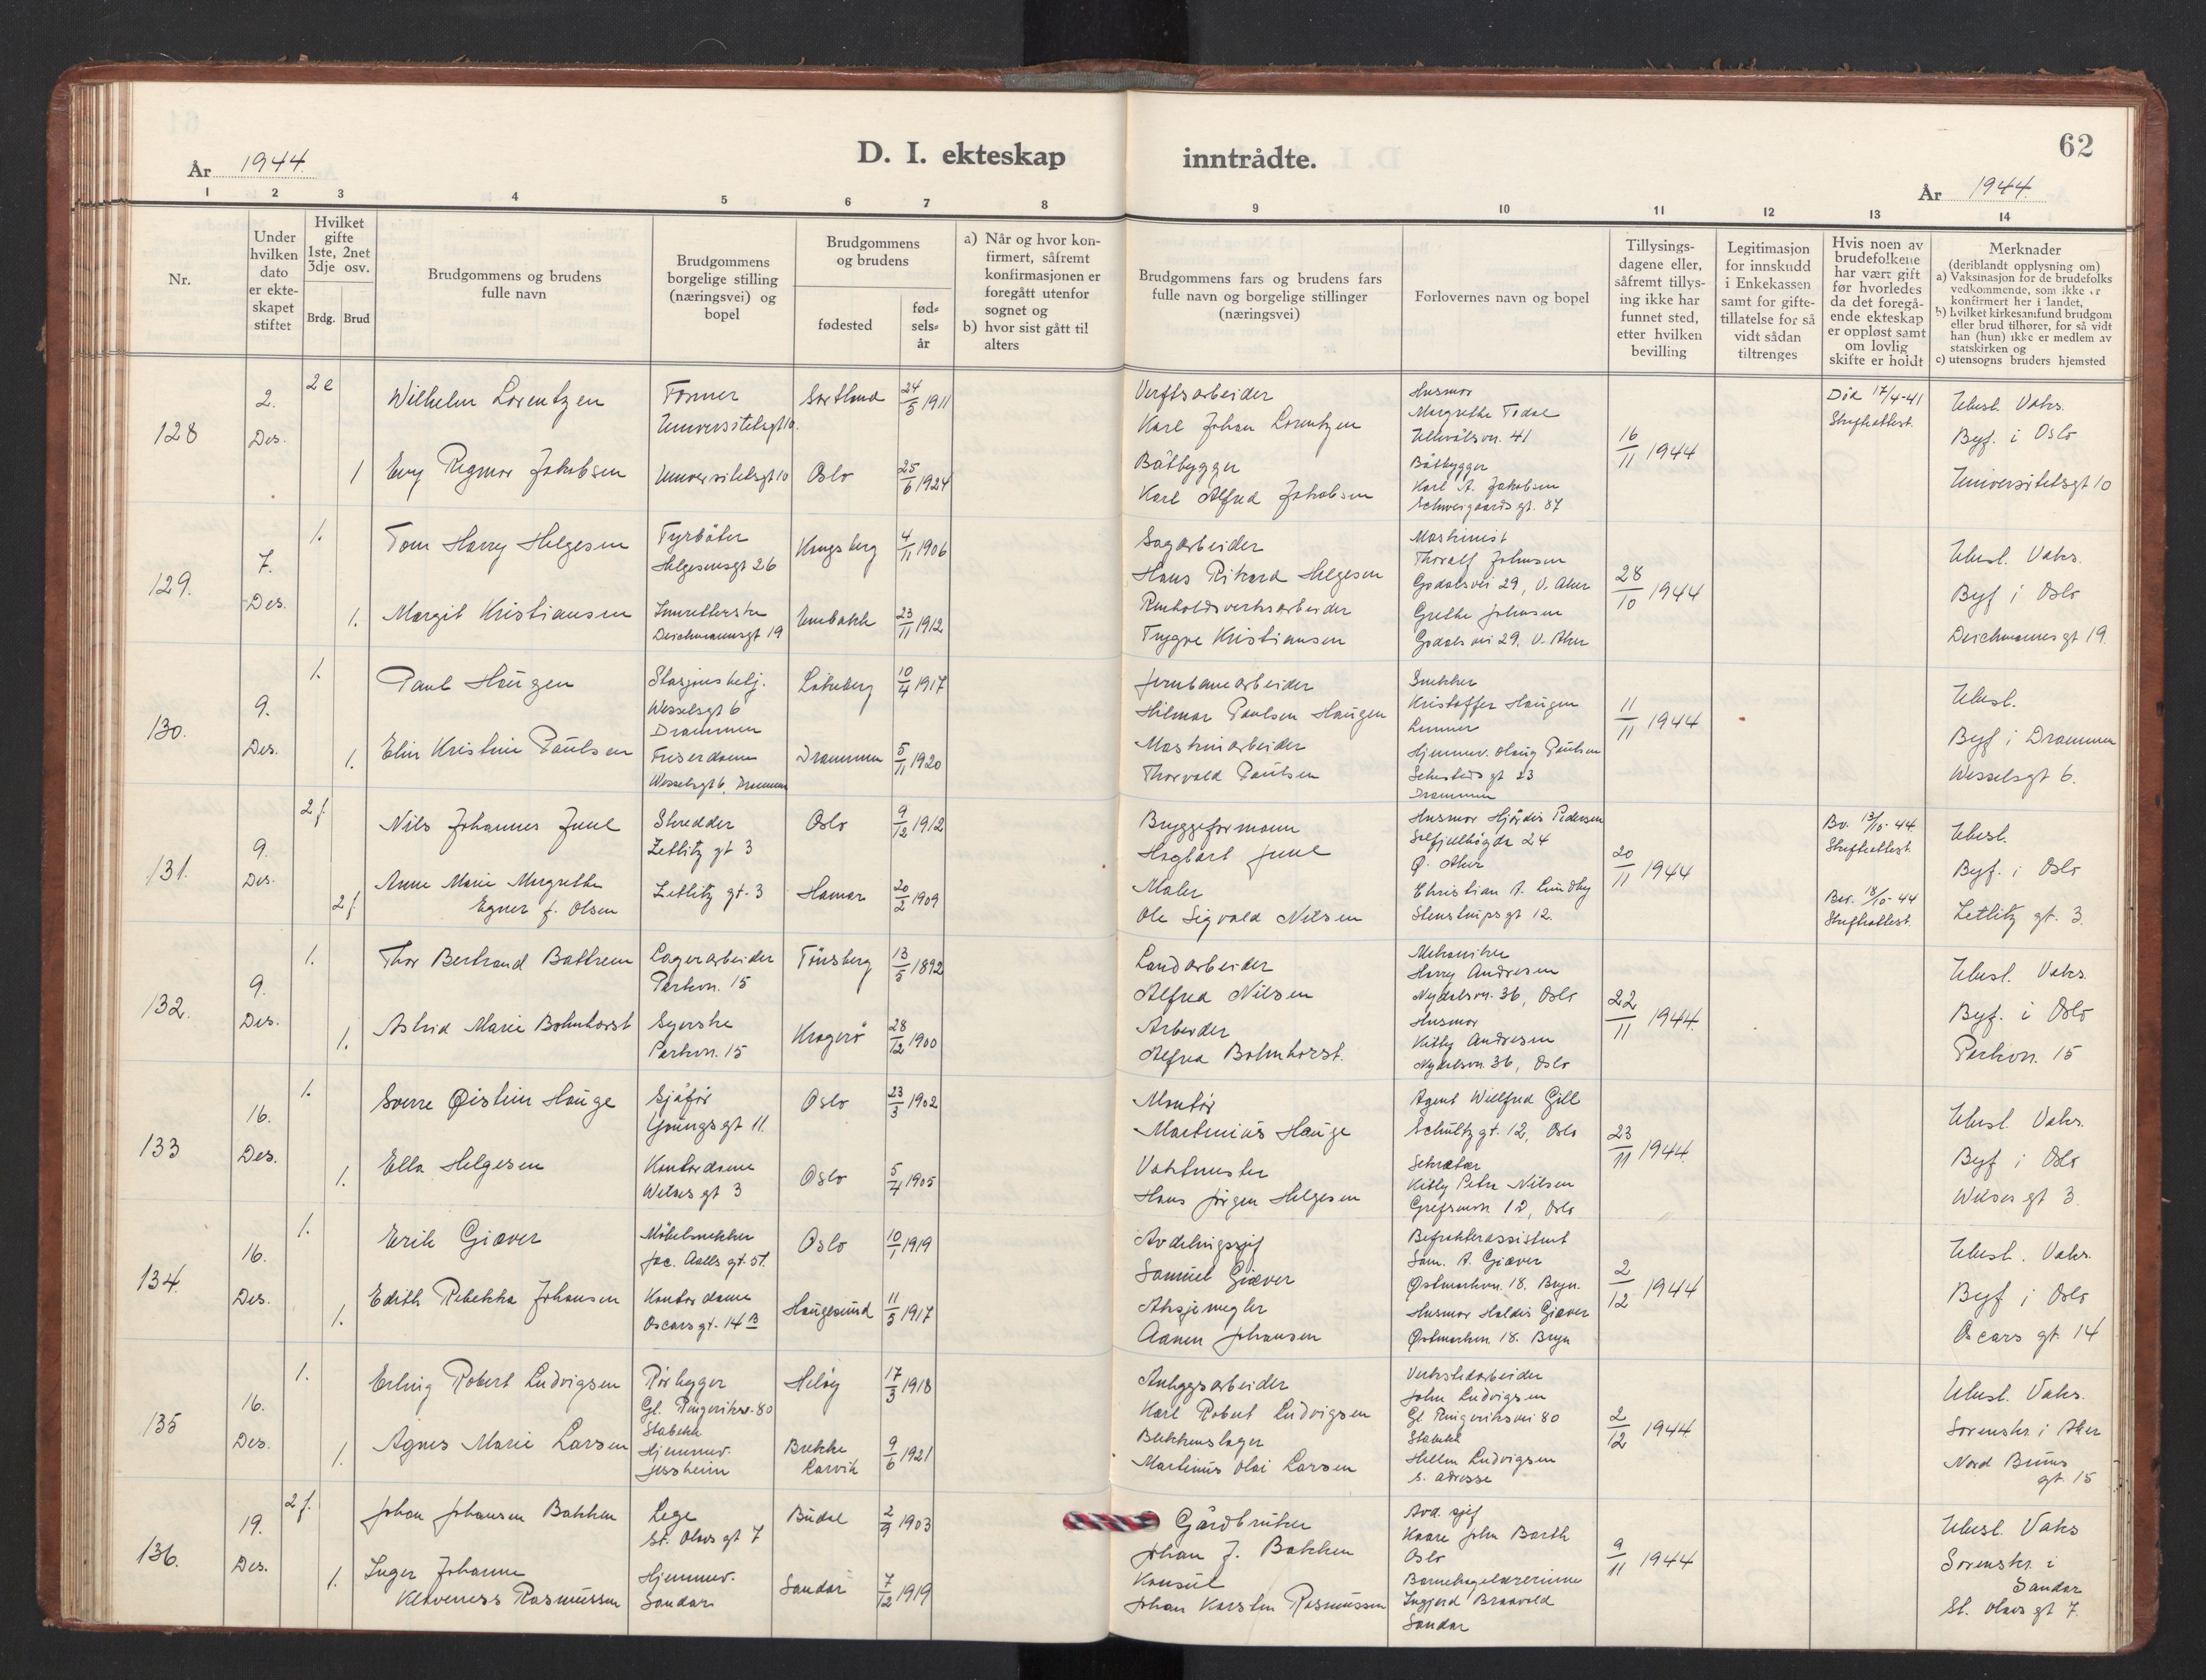 62
År 1944.
D. I. ekteskap inntrådte.
År 1944.
1 2 3 4 5 6 7 8 9 10 11 12 13 14
Nr.
Under hvilken dato er ekte-skapet stiftet
Hvilket gifte 1ste, 2net 3dje osv.
Brdg. Brud
Brudgommens og brudens fulle navn
Brudgommens borgelige stilling (næringsvei) og bopel
Brudgommens og brudens
fødested
fød-sels-år
a) Når og hvor kon-firmert, såfremt konfirmasjonen er foregått utenfor sognet og
b) hvor sist gått til alters
Brudgommens fars og brudens fars fulle navn og borgelige stillinger (næringsvei)
Forlovernes navn og bopel
Tillysings-dagene eller, såfremt tillys-ing ikke har funnet sted, etter hvilken bevilling
Legitimasjon for innskudd i Enkekassen samt for gifte-tillatelse for så vidt sådan tiltrenges
Hvis noen av brudefolkene har vært gift før hvorledes da det foregå-ende ekteskap er oppløst samt om lovlig skifte er holdt
Merknader (deriblandt opplysning om)
a) Vaksinasjon for de brudefolks vedkommende, som ikke er konfirmert her i landet,
b) hvilket kirkesamfund brudgom eller brud tilhører, for så vidt han (hun) ikke er medlem av statskirken og
c) utensogns bruders hjemsted
128
2. Des.
2 e
Wilhelm Lorentzen
Universitetsgt 10.
Sortland
24/5 1911
Verftsarbeider
Karl Johan Lorentzen
Husmor
Margrethe Todal
Ullevålsvn. 41
16/11 1944
Død 17/4-41
Skifteattest.
Utest. Vaks.
Byf. i Oslo
Universitetsgt 10
1
Evy Rigmor Jakobsen
Universitetsgt 10
Oslo
25/6 1924
Båtbygger
Karl Alfred Jakobsen
Båtbygger
Karl A. Jakobsen
Schweigaardsgt. 87
129.
7. Des.
1.
Tom Harry Helgesen
Fyrbøter
Helgesensgt 26
Kongsberg
4/11 1906
Sagarbeider
Hans Rikard Helgesen
Maskinist
Thoralf Johnsen
Godalsvei 29, V. Aker
28/10 1944
Utest. Vaks.
Byf i Oslo
Deichmannsgt 19.
1.
Margit Kristiansen
Deichmannsgt 19
Enebakk
23/11 1912
Renholdsverksarbeider
Trygve Kristiansen
Grethe Johnsen
Godalsvei 29, V. Aker
130.
9. Des.
1.
Paul Haugen
Stasjonsbetj.
Wesselsgt 6
Drammen
10/4 1917
Jernbanearbeider
Hilmar Paulsen Haugen
Snekker
Kristoffer Haugen
Lunner
11/11 1944
Utest.
Byf i Drammen
Wesselsgt 6.
1.
Elin Kristine Paulsen
Friserdame
Wesselsgt 6, Drammen
Drammen
5/11 1920
Maskinarbeider
Thorvald Paulsen
Hjemmev. Olaug Paulsen
Schestedsgt 23
Drammen
131.
9. Des.
2 f.
Nils Johannes Juul
Skredder
Zetlitz gt 3
Oslo
9/12 1912
Bryggeformann
Hagbart Juul
Husmor Hjørdis Pedersen
Solfjellhøgda 24
Ø. Aker
20/11 1944
Bv. 13/10-44
Skifteattest.
Utest.
Byf. i Oslo
Zetlitz gt. 3
2 f.
Anne Marie Margrethe
Egner f. Olsen
Zetlitz gt. 3
Hamar
20/2 1909
Maler
Ole Sigvald Nilsen
Christian A. Lundby
Stenstrupsgt 12.
Bev. 18/10-44
Skifteattest.
132.
9. Des.
1.
Thor Bertrand Battrem
Lagerarbeider
Parkvn. 15
Tønsberg
13/5 1892
Landarbeider
Alfred Nilsen
Mekaniker
Harry Andresen
Nydalsvn. 36, Oslo
22/11 1944.
Utest. Vaks.
Byf. i Oslo
Parkvn. 15
1.
Astrid Marie Bohnhorst
Syerske
Parkvn. 15
Kragerø
28/12 1900
Arbeider
Alfred Bohnhorst.
Husmor
Kitty Andresen
Nydalsvn. 36, Oslo
133
16. Des.
1.
Sverre Øistein Hauge
Sjåfør
Youngsgt 11.
Oslo
23/3 1902
Montør
Martinius Hauge
Agent Willfred Gill
Schultzgt. 12, Oslo
23/11 1944.
Utest. Vaks.
Byf i Oslo
1.
Ella Helgesen
Kontordame
Oslo
5/4 1905
Vaktmester
Hans Jørgen Helgesen
Sekretær
Kitty Petra Nilsen
Grefsenvn 12, Oslo
134.
16. Des.
1.
Erik Giæver
Møbelsnekker
Jac. Aalls gt. 51.
Oslo
10/1 1919
Avdelingssjef
Samuel Giæver
Befrakterassistent
Sam. A. Giæver
Østmarkvn. 18. Bryn.
2/12 1944
Utest. Vaks.
Byf i Oslo
Oscars gt 14
1.
Edith Rebekka Johansen
Kontordame
Oscars gt. 14 B
Haugesund
11/5 1917
Aksjemegler
Aanen Johansen
Husmor Haldis Giæver
Østmarkvn. 18. Bryn
135
16. Des.
1.
Erling Robert Ludvigsen
Rørlegger
Gl. Ringeriksv. 80
Stabekk
Heløy
17/3 1918
Anleggsarbeider
Karl Robert Ludvigsen
Verkstedarbeider
John Ludvigsen
Gl. Ringeriksvei 80
Stabekk
2/12 1944
Utest. Vaks.
Sorenskr i Aker
Nord Bruns
gt. 15
1.
Agnes Marie Larsen
Hjemmev.
Jessheim
Brekke
Larvik
9/6 1921
Blikkenslager
Martinus Olai Larsen
Hellen Ludvigsen
s. adresse
136.
19. Des.
2 f.
Johan Johansen Bakken
Lege
St. Olavs gt 7
Budal
2/9 1903
Gårdbruker
Johan J. Bakken
Avd. sjef
Kaare John Barth
Oslo
9/11 1944
Utest. Vaks
Sorenskr. i
Sandar
St. Olavs gt 7.
1.
Inger Johanne
Klaveness Rasmussen
Hjemmev.
Sandar
Sandar
7/12 1919
Konsul
Johan Karsten Rasmussen
Barnehagelærerinne
Ingjerd Braavold
Sandar